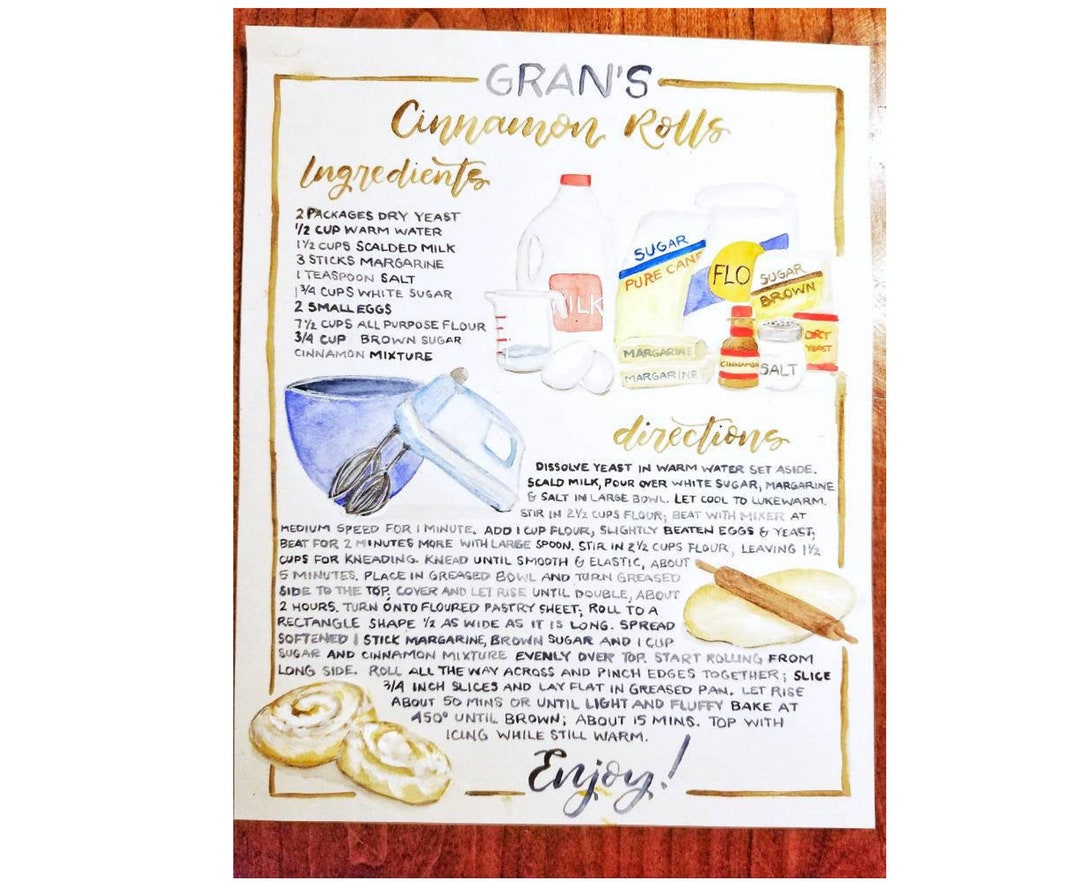 GRAN'S
Cinnamon Rolls
Ingredients
2 PACKAGES DRY YEAST
1/2 CUP WARM WATER
1 1/2 CUPS SCALDED MILK
3 STICKS MARGARINE
1 TEASPOON SALT
1 3/4 CUPS WHITE SUGAR
2 SMALL EGGS
7 1/2 CUPS ALL PURPOSE FLOUR
3/4 CUP BROWN SUGAR
CINNAMON MIXTURE
MILK
SUGAR
PURE CANE
FLO
SUGAR
BROWN
MARGARINE
MARGARINE
CINNAMON
SALT
DRY
YEAST
directions
DISSOLVE YEAST IN WARM WATER SET ASIDE.
SCALD MILK, POUR OVER WHITE SUGAR, MARGARINE
& SALT IN LARGE BOWL. LET COOL TO LUKEWARM.
STIR IN 2 1/2 CUPS FLOUR; BEAT WITH MIXER AT
MEDIUM SPEED FOR 1 MINUTE. ADD 1 CUP FLOUR, SLIGHTLY BEATEN EGGS & YEAST;
BEAT FOR 2 MINUTES MORE WITH LARGE SPOON. STIR IN 2 1/2 CUPS FLOUR, LEAVING 1 1/2
CUPS FOR KNEADING. KNEAD UNTIL SMOOTH & ELASTIC, ABOUT
5 MINUTES. PLACE IN GREASED BOWL AND TURN GREASED
SIDE TO THE TOP, COVER AND LET RISE UNTIL DOUBLE, ABOUT
2 HOURS. TURN ONTO FLOURED PASTRY SHEET; ROLL TO A
RECTANGLE SHAPE 1/2 AS WIDE AS IT IS LONG. SPREAD
SOFTENED 1 STICK MARGARINE, BROWN SUGAR AND 1 CUP
SUGAR AND CINNAMON MIXTURE EVENLY OVER TOP. START ROLLING FROM
LONG SIDE. ROLL ALL THE WAY ACROSS AND PINCH EDGES TOGETHER; SLICE
3/4 INCH SLICES AND LAY FLAT IN GREASED PAN. LET RISE
ABOUT 50 MINS OR UNTIL LIGHT AND FLUFFY BAKE AT
450° UNTIL BROWN; ABOUT 15 MINS. TOP WITH
ICING WHILE STILL WARM.
Enjoy!